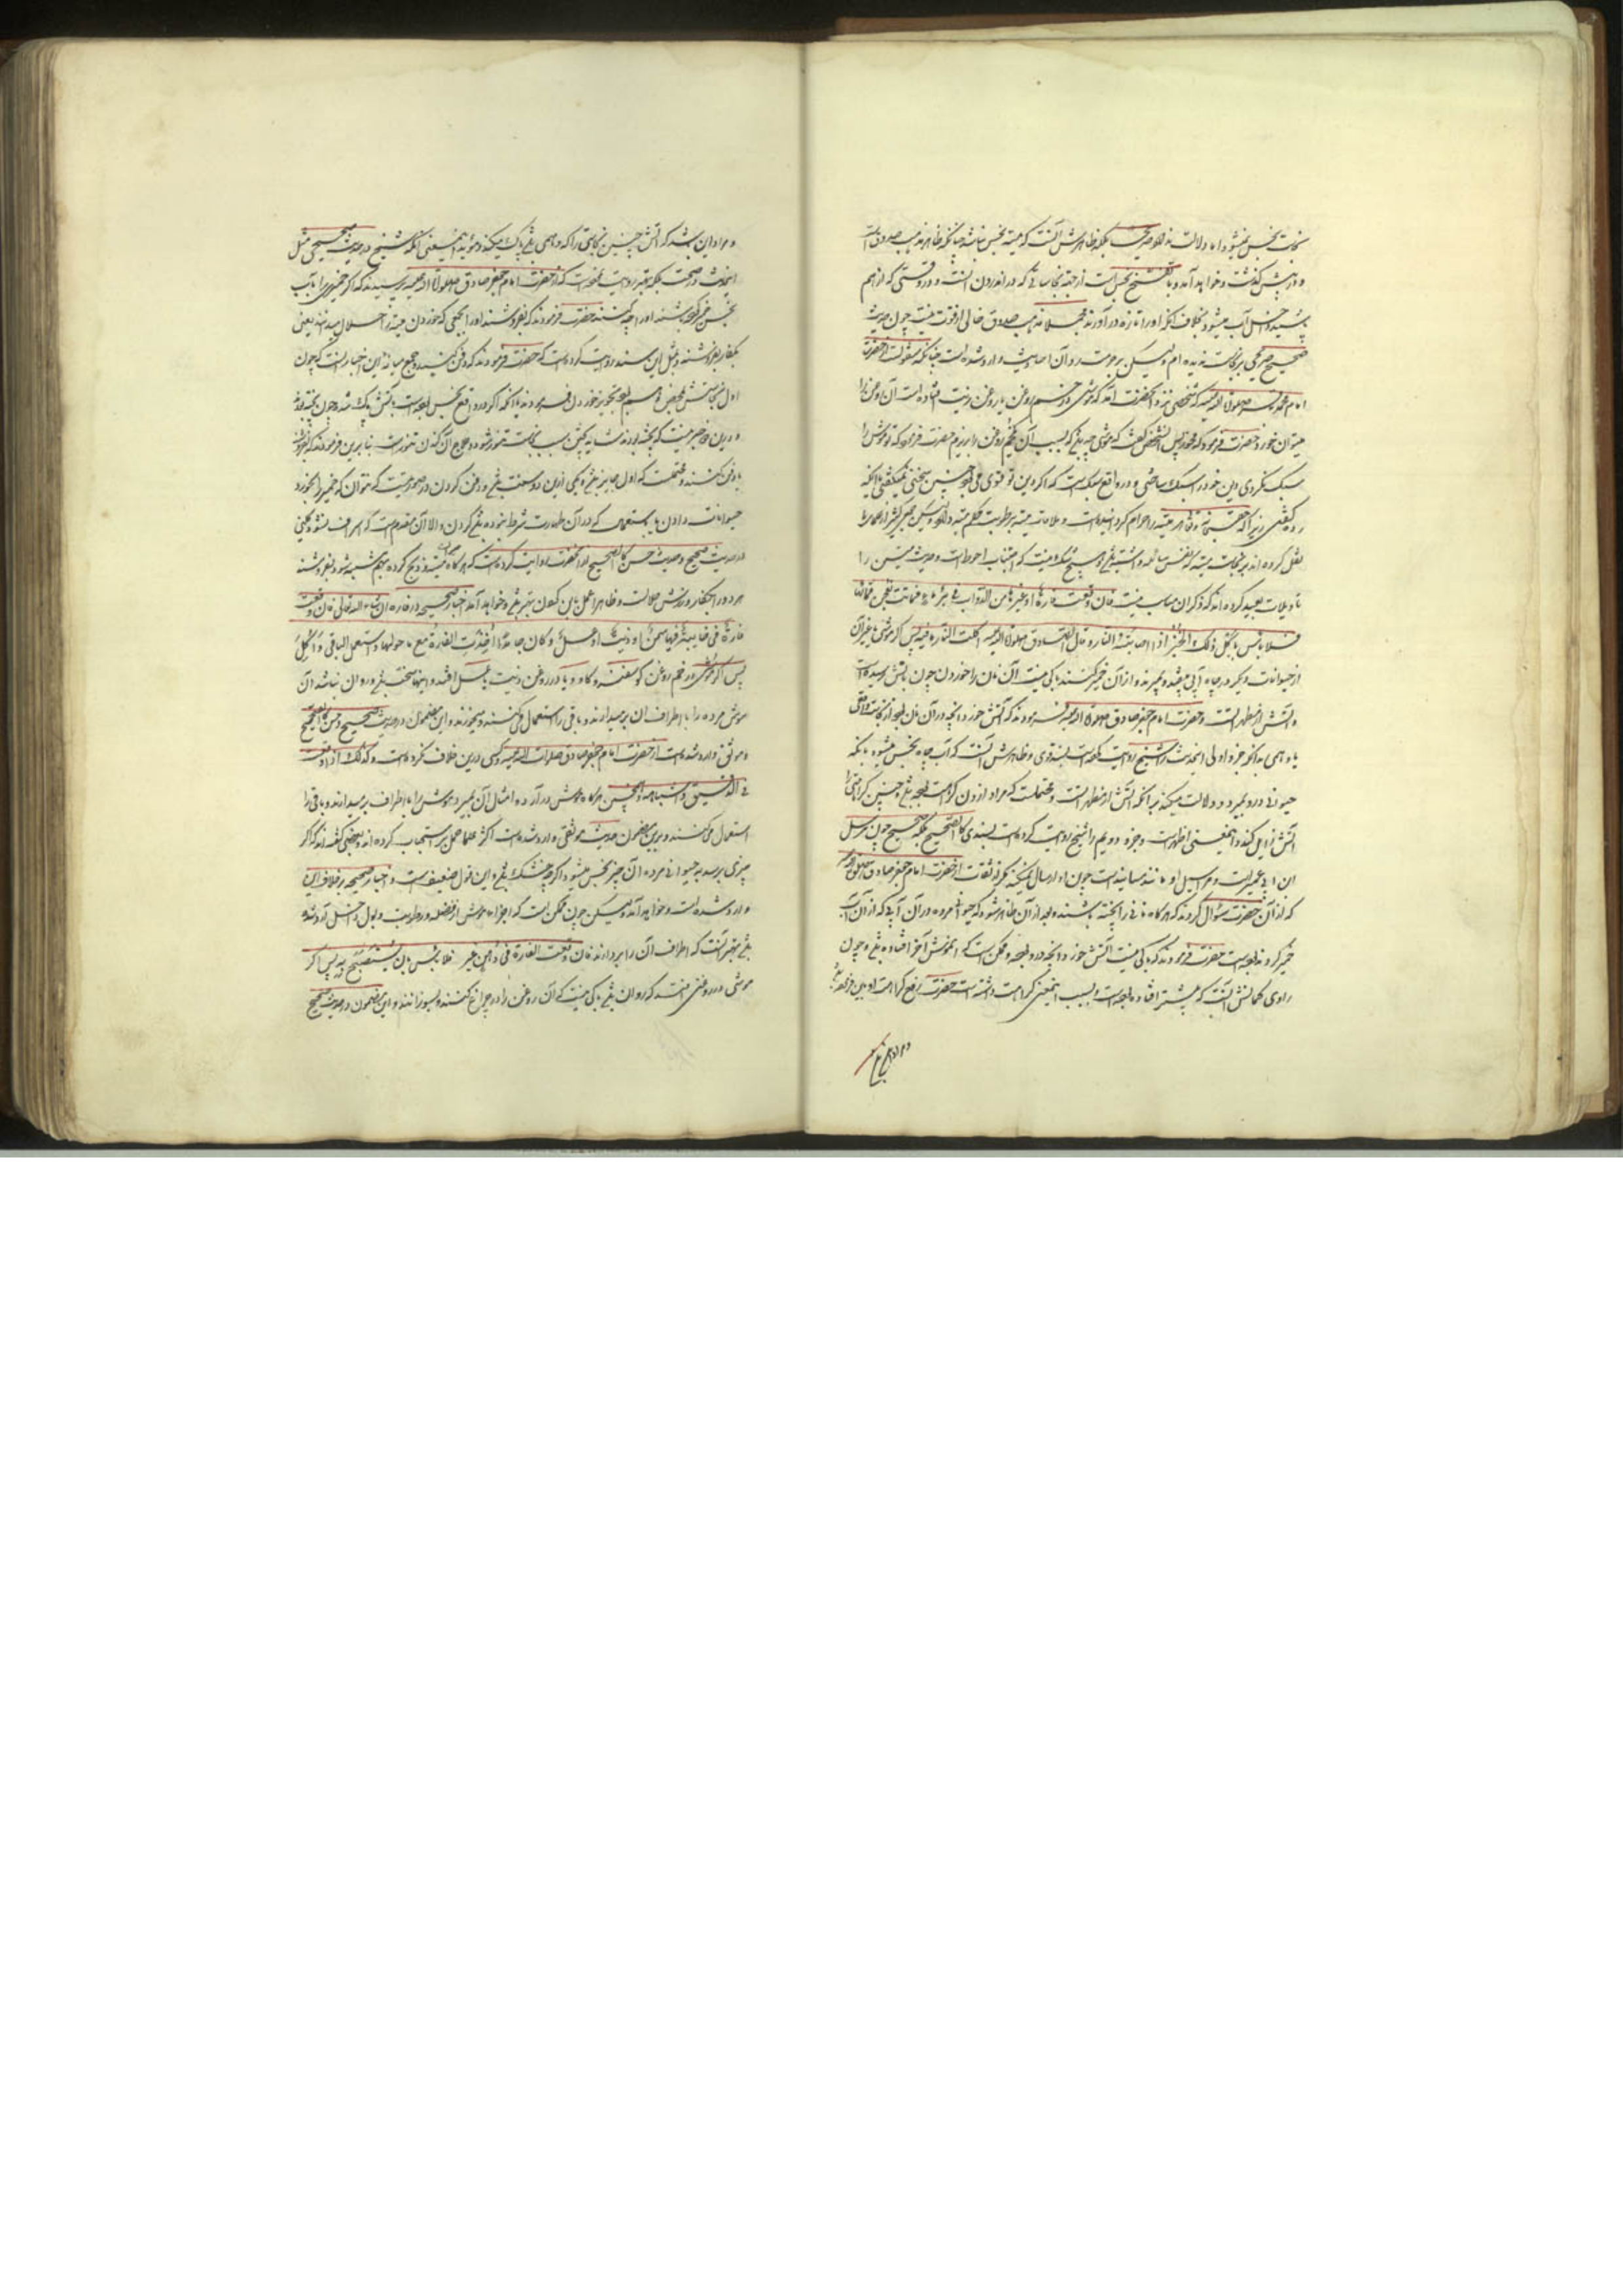 نجاست نجس میشود اما دلالت ندارد صریحا بلکه ظاهرش آنست که میته نجس نباشد چنانکه ظاهر مذهب صدوق است
و در پیش گذشت و خواهد آمد و با تفسخ نجس است از جهة نجاساتی که در اندرون اوست و در وقتی که از هم
پاشید داخل آب میشود بخلاف آنکه او را تازه در آورند مجملا مذهب صدوق خالی از قوت نیست چون حدیث
صحیح صریحی بر نجاست ندیده ام ولیکن بر حرمت و آن احادیث وارد شده است چنانکه منقولست از حضرت
امام محمد باقر صلوات الله علیه که شخصی نزد آنحضرت آمد که موشی در خم روغن یا روغن زیت افتاده است آن روغن را
میتوان خورد حضرت فرمود که مخور پس آن شخص گفت که موش چه باشد که بسبب آن خم روغن را بریزم حضرت فرمود که تو موش را
سبک نکردی دین خود را سبک ساختی و در واقع سبک است که اگر دین تو قوی می بود چنین سخنی نمیگفتی با آنکه
رد کفتی زیرا که حق سبحانه و تعالی هر میته را حرام کرده است و ملاقات میته برطوبت حکم میته دارد ولیکن چون کثیر از علما
نقل کرده اند بر نجاست میته که نفس سائله داشته باشد و هیچ شک نیست که اجتناب احوط است و حدیث میتین را
تأویلات بعید کرده اند که ذکر آن مناسب نیست فان وقعت فارة او غیرها من الدواب فی بئر ماء فماتت فعجن من مائها
فلا باس باکل ذلک الخبز اذا اصابته النار و قال الصادق صلوات الله علیه اکلت النار ما فیه پس اگر موشی یا غیر آن
از حیوانات دیگر در چاه آبی بیفتد و بمیرند و از آن خمیر کنند باکی نیست آن نان را خوردن چون بآتش رسیده است
و آتش از مطهراتست و حضرت امام جعفر صادق صلوات الله علیه فرمودند که آتش خورد آنچه در آن نان بود از نجاست واقعی
یا وهمی بدانکه جزو اولی این حدیث را شیخ روایت کرده است بسند قوی و ظاهرش آنست که آب چاه نجس میشود بآنکه
حیوانی درو بمیرد و دلالت میکند بر آنکه آتش از مطهراتست و محتملست که مراد از زدن کراهت بوده باشد و چنین کراهتی را
آتش زایل کند و اینمعنی اظهر است و جزو دویم را شیخ روایت کرده است بسندی کالصحیح بلکه صحیح چون مرسل
ابن ابی عمیر است و مراسیل او مانند مسانید است چون او ارسال نمیکند مگر از ثقات از حضرت امام جعفر صادق صلوات الله علیه
که از آن حضرت سؤال کردند که هرگاه نانی را پخته باشند و بعد از آن ظاهر شود که حیوانی مرده در آن آبی که از آن آب
خمیر کرده اند بوده است حضرت فرمودند که باکی نیست آتش خورد آنچه درو بود و ممکن است که آن موش آخر افتاده باشد و چون
راوی گمانش آنست که پیشتر افتاده بوده است و بسبب اینمعنی کراهت داشته است حضرت رفع کراهت او باین فرمودند
و مراد این باشد
و مراد این باشد که آتش چنین نجاستی را که وهمی باشد پاک میکند و مؤید اینمعنی آنکه شیخ در حدیث صحیحی مثل
این حدیث در صحت بلکه بهتر روایت نموده است که از حضرت امام جعفر صادق صلوات الله علیه پرسیدند که اگر خمیری را بآب
نجس خمیر کرده باشند او را چه کنند حضرت فرمودند که بفروشند او را بجمعی که خوردن میته را حلال میدانند یعنی
بکفار بفروشند و بمثل این سند روایت کرده است که حضرت فرمودند که دفن کنید و جمع میانه این اخبار آنست که چون
و درین خمیر نیست که پخته بودند شاید پختن سبب نجاست تنور شود و علاج آن کنان تنور است بنا برین فرمودند که بفروشند
یا دفن کنند و محتملست که اول جایز باشد و یکی ازین دو سنت باشد و دفن کردن در صورتیست که نتوان که خمیر را بخورد
حیوانات دادن یا باستعمالی که در آن طهارت شرط نبوده باشد کردن و الا آن مقدم است که اسراف نشود و کلینی
در حدیث صحیح و حدیث حسن کالصحیح از آنحضرت روایت کرده است که هرگاه میته و ذبح کرده بهم مشتبه شود بفروشند
هر دو را بکفار و ثمنش حلالست و ظاهرا عمل باین کردن بهتر باشد و خواهد آمد اخبار صحیحه درباره ان شاء الله تعالی فان وقعت
فارة فی خابیة فیها سمن او زیت او عسل و کان جامدا اخذت الفارة مع ما حولها و استعمل الباقی و اکل
پس اگر موشی در خم روغن گوسفند و گاو و یا در روغن زیت یا عسل افتد و اینها سخت باشد و روان نباشد آن
موش مرده را با اطراف آن بر میدارند و باقی را استعمال می کنند و میخورند و این مضمون در حدیث صحیح و حسن کالصحیح
و موثق وارد شده است از حضرت امام جعفر صادق صلوات الله علیه و کسی درین خلاف نکرده است و کذلک اذا وقعت
فی الدقیق و اشباهه و همچنین هرگاه موش در آرد و امثال آن بمیرد موش را با اطراف بر میدارند و باقی را
استعمال می کنند و برین مضمون حدیث موثقی وارد شده است اکثر علما حمل بر استحباب کرده اند و بعضی گفته اند که اگر
چیزی برسد بحیوانی مرده آن چیز نجس میشود اگر چه خشک باشد و این قول ضعیف است و اخبار صحیحه بر خلاف این
وارد شده است و خواهد آمد ولیکن چون ممکن است که اجزاء موش از فضله و رطوبت و بول داخل آرد شده
باشد بهتر آنست که اطراف آن را بردارند فان وقعت الفارة فی دهن غیر فلا بأس بان یستصبح به پس اگر
موشی در روغنی افتد که روان باشد باکی نیست که آن روغن را در چراغ کنند و بسوزانند و این مضمون در حدیث صحیح